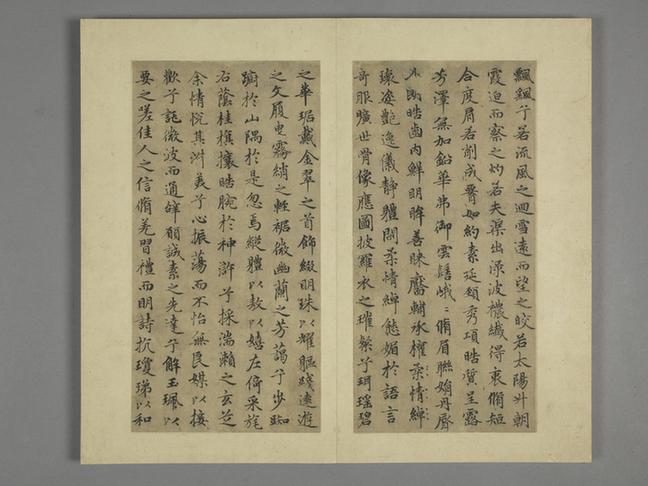 飄飄兮若流風之迴雪遠而望之皎若太陽升朝
霞迫而察之灼若夫蕖出淥波襛纖得衷脩短
合度肩若削成署如約素延頸秀項皓質呈露
芳澤無加鉛華弗御雲髻峨〻脩眉聯娟丹脣
外朗皓齒內鮮明眸善睞靨輔承權柔情綽
瓌姿艷逸儀靜體閑柔情綽態媚於語言
奇服曠世骨像應圖披羅衣之璀粲兮珥瑤碧
之華琚戴金翠之首飾綴明珠以耀軀踐遠遊
之文履曳霧綃之輕裾微幽蘭之芳藹兮步踟
躕於山隅於是忽焉縱體以敖以嬉左倚采旄
右蔭桂旗攘皓腕於神滸兮採湍瀨之玄芝
余情悅其淑美兮心振蕩而不怡無良媒以接
歡兮託微波而通辭願誠素之先達兮解玉珮以
要之嗟佳人之信脩羌習禮而明詩抗瓊珶以和